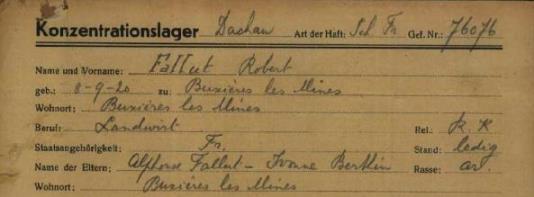 Konzentrationslager Dachau Art der Haft: Sch Fr. Gef. Nr.: 76076
Name und Vorname: Fallut Robert
geb.: 8-9-20 zu: Buxières les Mines
Wohnort: Buxières les Mines
Beruf: Landwirt Rel.: R. K
Staatsangehörigkeit: Fr. Stand: ledig
Name der Eltern: Alphonse Fallut - Yvonne Rasse: ar.
Wohnort: Buxières les Mines